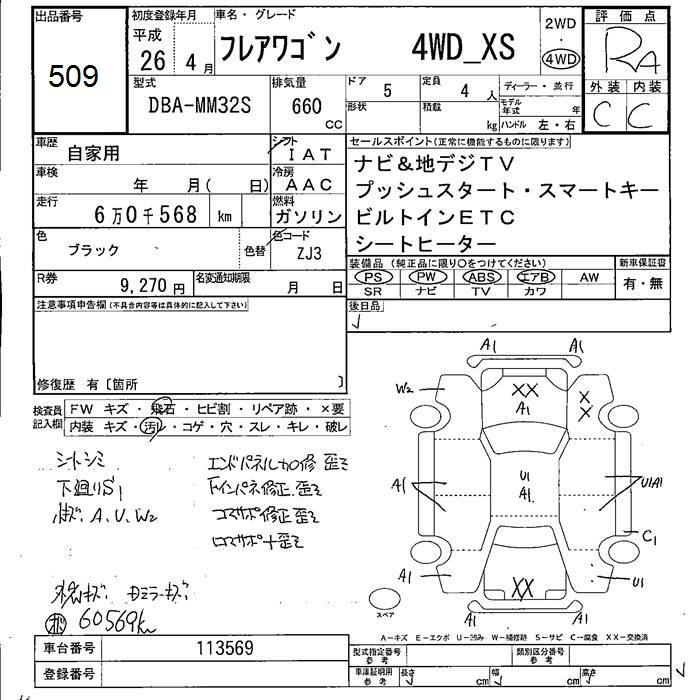 出品番号
509
初度登録年月
平成
26年4月
車名・グレード
フレアワゴン 4WD_XS
2WD
・
4WD
評価点
RA
外装 内装
C C
型式
DBA-MM32S
排気量
660
CC
ドア
5
定員
4人
形状
積載
kg
ディーラー・並行
モデル年式 年
ハンドル 左・右
車歴
自家用
シフト
IAT
車検
年 月( 日)
冷房
AAC
走行
6万0千568 km
燃料
ガソリン
色
ブラック
色替
色コード
ZJ3
セールスポイント(正常に機能するものに限ります)
ナビ&地デジTV
プッシュスタート・スマートキー
ビルトインETC
シートヒーター
装備品(純正品に限り○をつけてください)
PS PW ABS エアB AW
SR ナビ TV カワ
新車保証書
有・無
R券
9,270円
名変通知期限
月 日
後日品
注意事項申告欄(不具合内容等は具体的に記入して下さい)
修復歴 有〔箇所 〕
検査員記入欄
FW キズ・飛石・ヒビ割・リペア跡・×要
内装 キズ・汚レ・コゲ・穴・スレ・キレ・破レ
シートシミ
下廻りS1
A、U、W2
エンドパネル加修 歪ミ
インパネ修正歪ミ
コアサポ修正歪ミ
ロアサポート歪ミ
ドアミラーキズ
60569km
A1 A1
W2
XX
A1
X
X
A1
U1
A1
U1A1
C1
A1
XX
U1
A1 A1
スペア
A-キズ E-エクボ U-凹み W-補修跡 S-サビ C-腐食 XX-交換済
車台番号
113569
登録番号
型式指定番号
参考
類別区分番号
参考
車庫証明用
参考
長さ cm
幅 cm
高さ cm